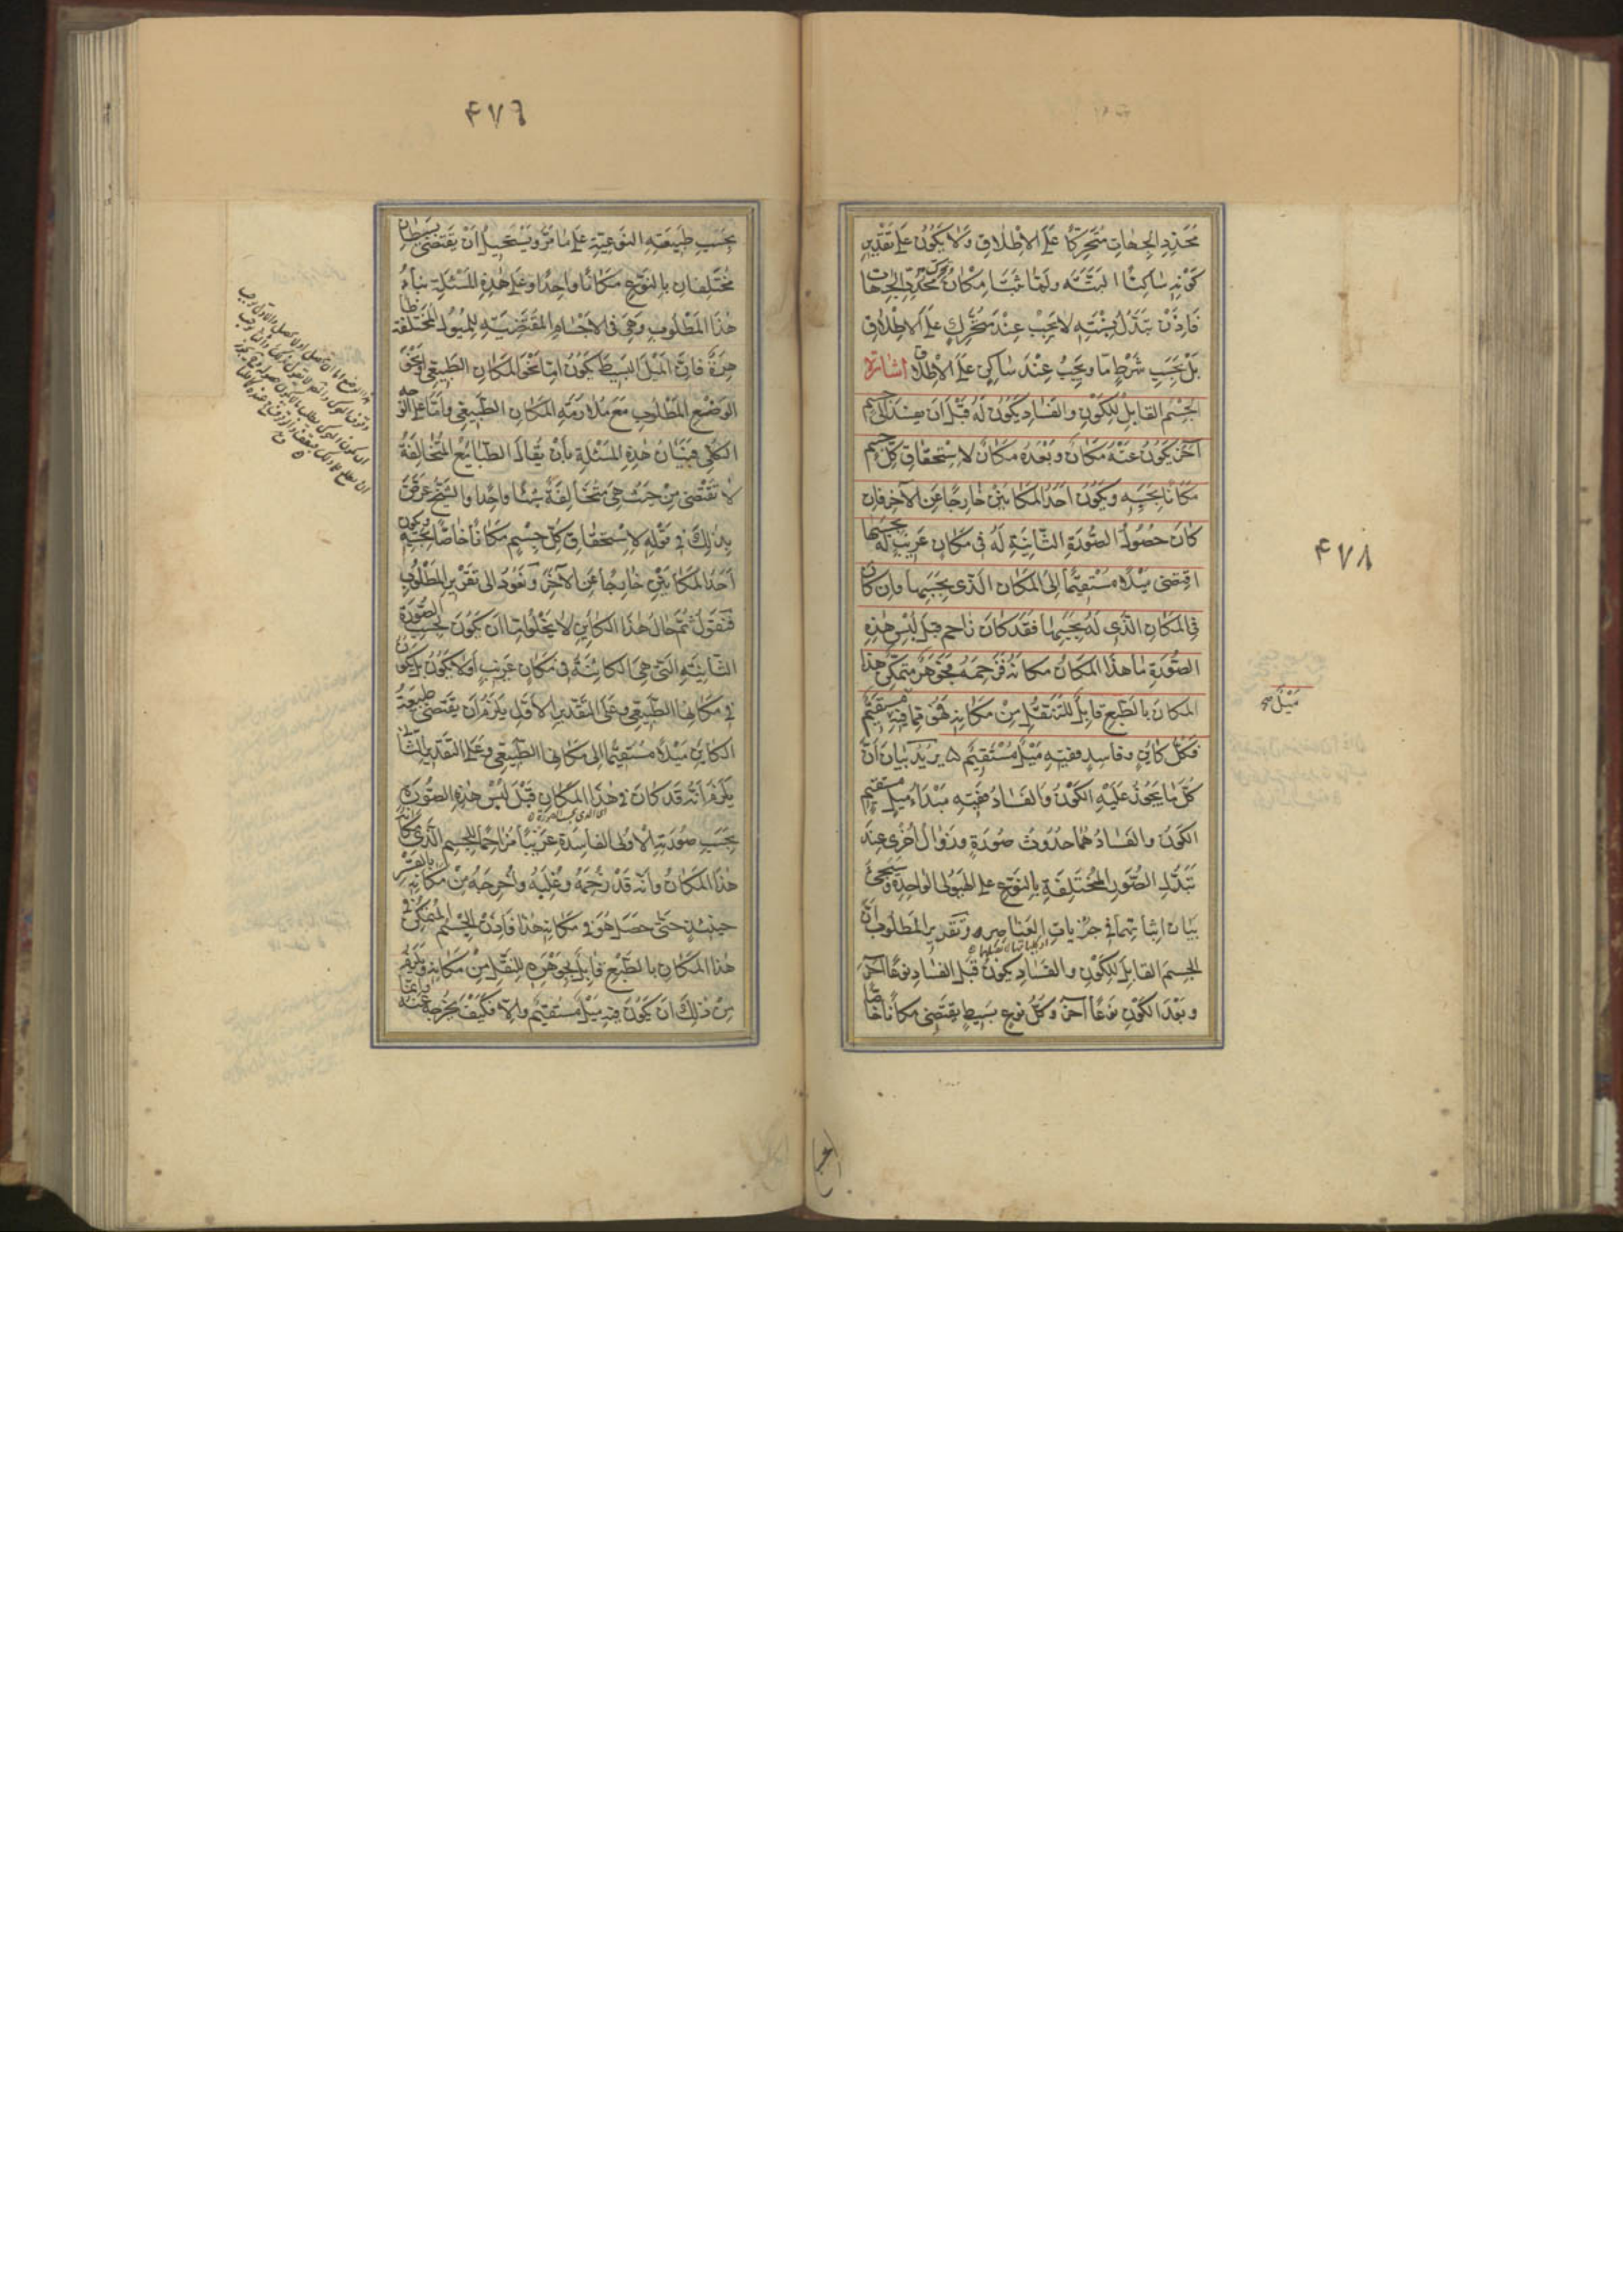 محدد الجهات متحركا على الاطلاق ولا يكون على تقدير
كونه ساكنا البتة ولما ثبت امكان تحرك محدد الجهات
فاذن تبدل نسبته لا يجب عند متحرك على الاطلاق
بل بحسب شرط ما ويجب عند ساكن على الاطلاق اشارة
الجسم القابل للكون والفساد يكون له قبل ان يفسد الى جسم
آخر يكون عنه مكان وبعده مكان لاستحقاق كل جسم
مكانا بحسبه ويكون احد المكانين خارجا عن الآخر فان
كان حصول الصورة الثانية له في مكان غريب له بحسبها
اقتضى ميلا مستقيما الى المكان الذى بحسبها وان كان
في المكان الذى له بحسبها فقد كان زاحم قبل لبس هذه
الصورة ما هذا المكان مكانه فزحمه فجوهر متمكن هذا
المكان بالطبع قابل للتنقل من مكانه فهو مما فيه مستقيم
ميل صح
فكل كاين وفاسد ففيه ميل مستقيم يريد بيان ان
كل ما يجوز عليه الكون والفساد ففيه مبداء ميل مستقيم
الكون والفساد هما حدوث صورة وزوال اخرى عند
تبدل الصور المختلفة بالنوع على الهيولى الواحدة وسيجئ
بيان اثباتهما في جزيات العناصر وتقرير المطلوب ان
الجسم القابل للكون والفساد يكون قبل الفساد نوعا آخر
وبعد الكون نوعا آخر وكل نوع بسيط يقتضى مكانا خاصا
۴۷۸
۴۷٦
بحسب طبيعته النوعية على ما مر ويستحيل ان يقتضى بسيطان
مختلفان بالنوع مكانا واحدا وعلى هذه المسئلة بناء
هذا المطلوب وهى فى الاجسام المقتضية للميول المختلفة ظا
هرة فان الميل البسيط يكون اما نحو المكان الطبيعى او نحو
الوضع المطلوب مع ملازمة المكان الطبيعى واما على الوجه
الكلى فبيان هذه المسئلة بان يقال الطبايع المتخالفة
لا تقتضى من حيث هى متخالفة شيئا واحدا والشيخ عرض
بذلك في قوله لاستحقاق كل جسم مكانا خاصا بحسبه ويكون
احد المكانين خارجا عن الآخر ونعود الى تقرير المطلوب
فنقول ثم حال هذا الكاين لا يخلو اما ان يكون بحسب الصورة
الثانية التى هى الكائنة في مكان غريب او لا يكون بل يكون
في مكانها الطبيعى وعلى التقدير الاول يلزم ان يقتضى طبيعة
الكاين ميلا مستقيما الى مكانها الطبيعى وعلى التقدير الثانى
يلزم انه قد كان في هذا المكان قبل لبس هذه الصورة
بحسب صورته الاولى الفاسدة غريبا مزاحما للجسم الذى مكانه
هذا المكان وانه قد زحمه وغلبه واخرجه من مكانه بالقسر
حينئذ حتى حصل هو في مكانه هذا فاذن الجسم المتمكن في
هذا المكان بالطبع قابل بجوهره للنقل من مكانه ويلزم
من ذلك ان يكون فيه ميل مستقيم والا فكيف يخرج عنه وانما